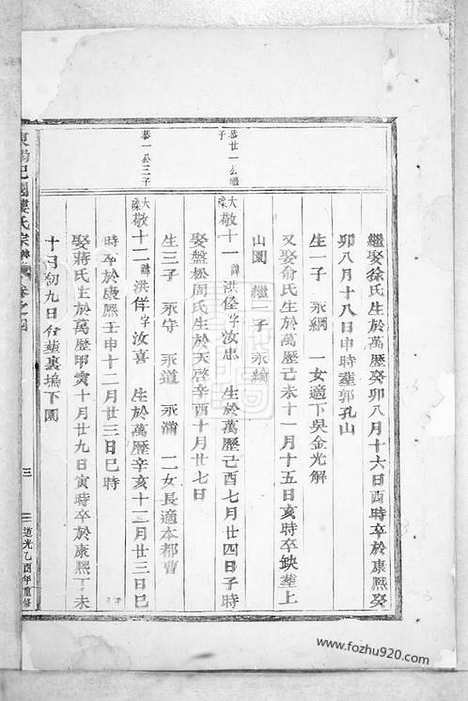 繼娶徐氏生於萬歷癸卯八月十六日酉時卒於康熙癸
卯八月十八日申時葬郭孔山
生一子 永綱 一女適下吳金光解
又娶俞氏生於萬歷己未十一月十五日亥時卒缺葬上
山園 繼一子 永綺
恭廿一公繼子
大樑敬十一諱洪佺字汝忠 生於萬歷己酉七月廿四日子時
娶盤松周氏生於天啓辛酉十月廿七日
生三子 永守 永道 永滿 二女長適本都曹
恭一公三子
大樑敬十二諱洪佯字汝喜 生於萬歷辛亥十二月廿三日巳
時卒於康熙壬申十二月廿三日巳時
娶蔣氏生於萬歷 亥十月廿九日寅時卒於康熙丁未
十月初九日合葬裏塢下園
氏宗譜 卷之
三
道光乙酉年重修
www.fozhu920.com